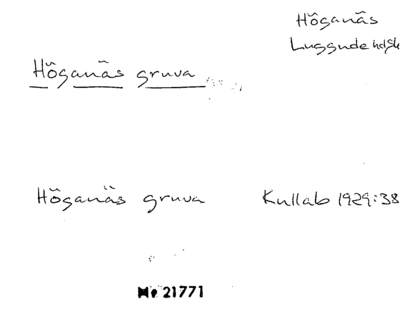 Höganäs
Luggude hd, Sk
Höganäs gruva
Höganäs gruva Kullab 1929:38
Nr 21771